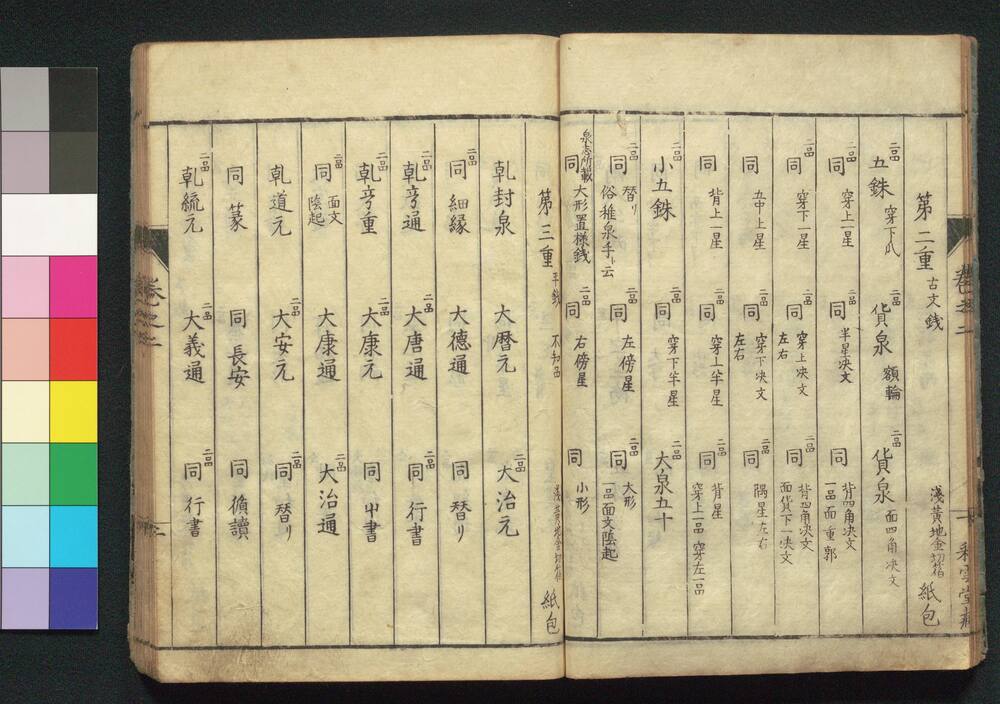 第二重 古文銭 浅黄地金切箔 紙包
二品 五銖 穿下爪 二品 貨泉 額輪 二品 貨泉 面四角决文
二品 同 穿上一星 二品 同 半星决文 同 背四角决文 一品面重郭
二品 同 穿下一星 二品 同 穿上决文 左右 二品 同 背四角决文 面貨下一决文
同 五中上星 二品 同 穿下决文 左右 二品 同 隅星左右
同 背上一星 二品 同 穿上半星 二品 同 背星 穿上一品 穿左一品
二品 小五銖 二品 同 穿下半星 二品 大泉五十
二品 同 替り 俗稚泉手ト云 二品 同 左傍星 二品 同 大形 一品面文陰起
泉志所載 同 大形置様銭 二品 同 右傍星 同 小形
第三重 平銭 不知品 浅黄地金切箔 紙包
乹封泉 大暦元 二品 大治元
二品 同 細縁 大德通 同 替り
二品 乹亨通 二品 大唐通 二品 同 行書
二品 乹亨重 二品 大康元 同 中書
二品 同 面文陰起 大康通 二品 大治通
乹道元 二品 大安元 二品 同 替り
同 篆 同 長安 同 循讀
二品 乹統元 二品 大義通 二品 同 行書
卷之二